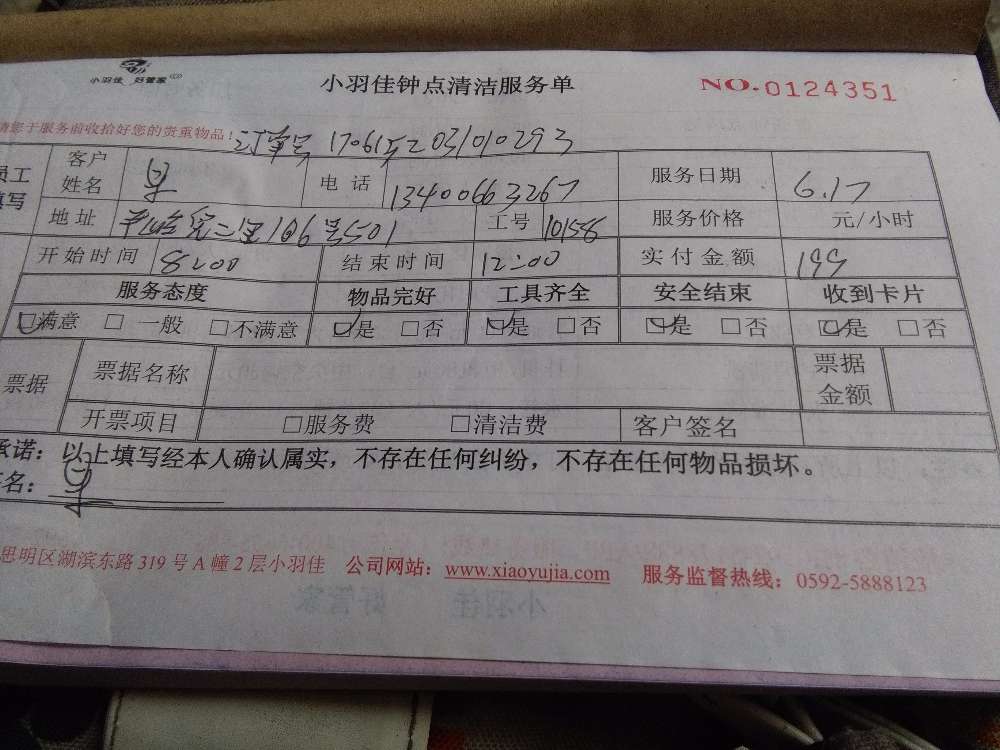 小羽佳 好管家
小羽佳钟点清洁服务单
NO.0124351
请您于服务前收拾好您的贵重物品！
订单号
员工填写 客户姓名 电话 13400663267 服务日期 6.17
地址 106号501 工号 10158 服务价格 元/小时
开始时间 8:00 结束时间 12:00 实付金额 199
服务态度 物品完好 工具齐全 安全结束 收到卡片
满意 一般 不满意 是 否 是 否 是 否 是 否
票据 票据名称 票据金额
开票项目 服务费 清洁费 客户签名
承诺：以上填写经本人确认属实，不存在任何纠纷，不存在任何物品损坏。
名：
思明区湖滨东路319号A幢2层小羽佳 公司网站：www.xiaoyujia.com 服务监督热线：0592-5888123